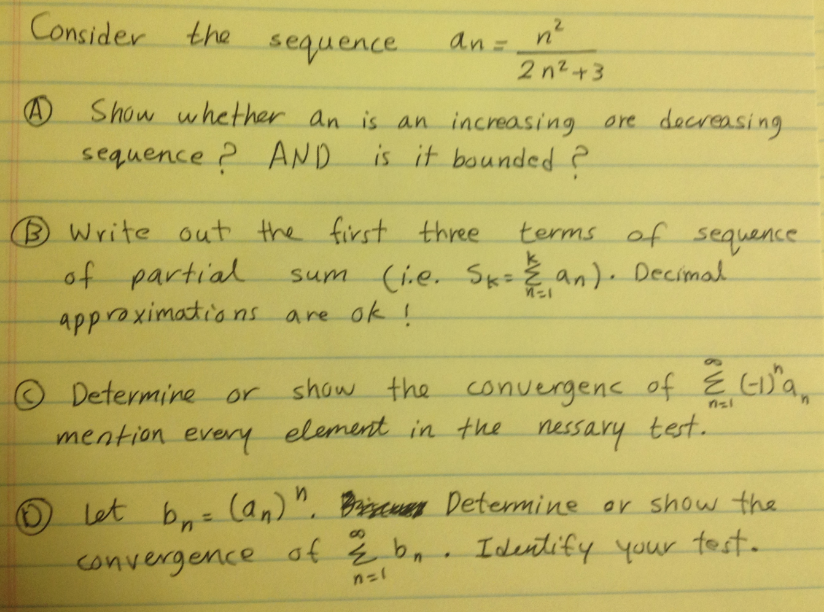 Consider the sequence an = n²/(2n²+3)
Ⓐ Show whether an is an increasing ore decreasing
sequence? AND is it bounded?
Ⓑ Write out the first three terms of sequence
of partial sum (i.e. Sₖ = ∑ₙ₌₁ᵏ an). Decimal
approximations are ok!
Ⓒ Determine or show the convergenc of ∑ₙ₌₁^∞ (-1)ⁿaₙ
mention every element in the nessary test.
Ⓓ Let bₙ = (an)ⁿ. Determine or show the
convergence of ∑ₙ₌₁^∞ bₙ. Identify your test.